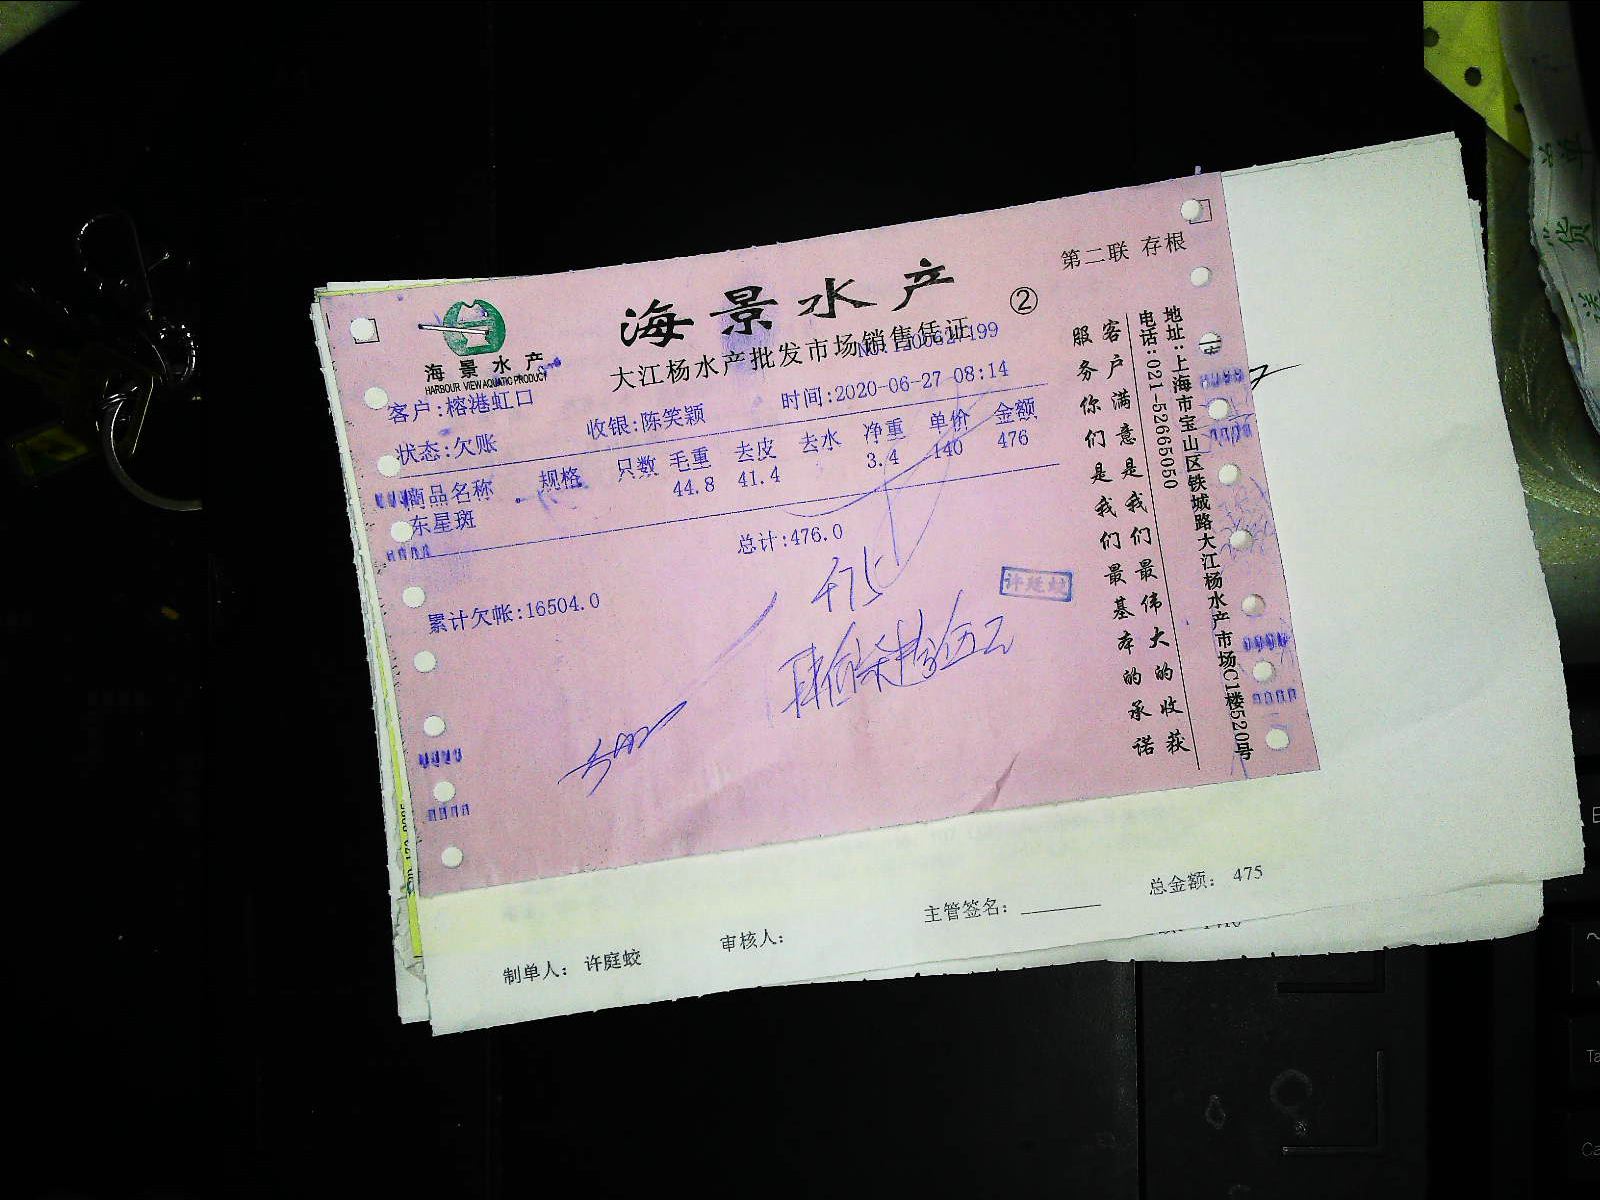 第二联 存根
海景水产
②
海景水产
HARBOUR VIEW AQUATIC PRODUCT
大江杨水产批发市场销售凭证
客户:榕港虹口
收银:陈笑颖
时间:2020-06-27 08:14
状态:欠账
商品名称 规格 只数 毛重 去皮 去水 净重 单价 金额
东星斑 44.8 41.4 3.4 140 476
总计:476.0
累计欠帐:16504.0
475
肆佰柒拾伍元
客户满意是我们最伟大的收获
服务你们是我们最基本的承诺
地址:上海市宝山区铁城路大江杨水产市场C1楼520号
电话:021-52665050
制单人: 许庭蛟
审核人:
主管签名:
总金额: 475